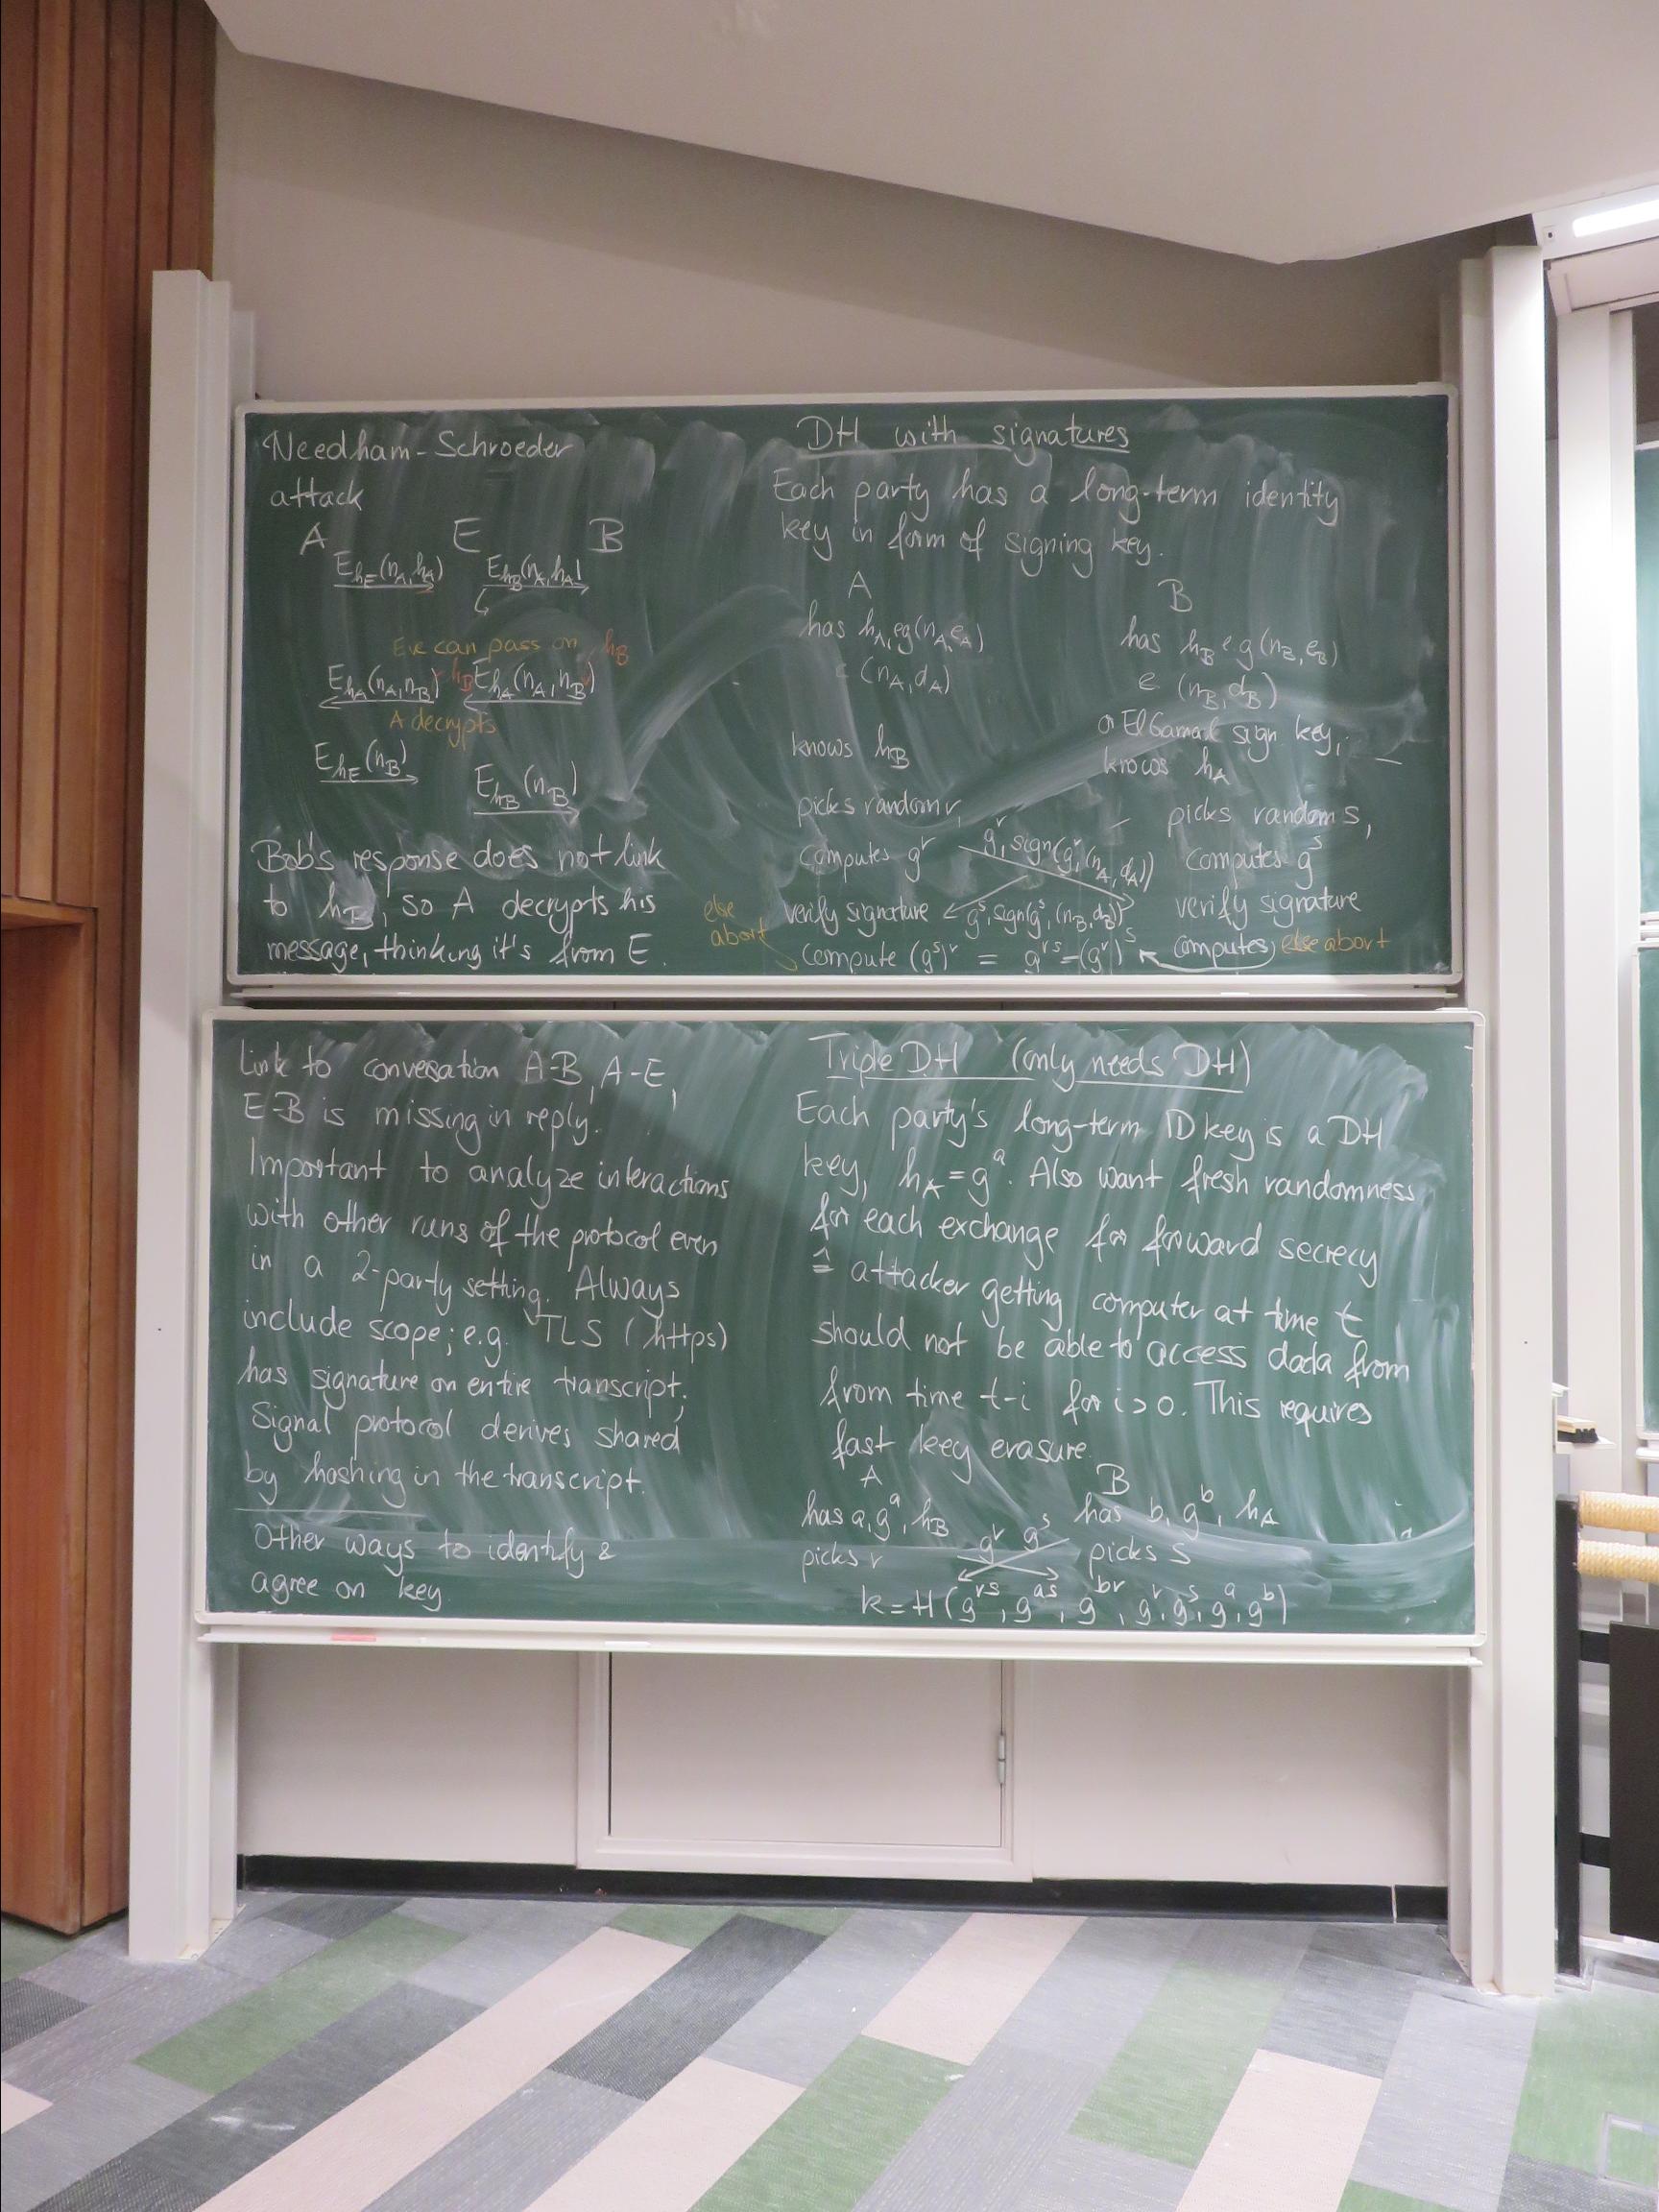 Needham-Schroeder
attack
A E B
E_{h_E}(n_A, h_A) E_{h_B}(n_A, h_A)
Eve can pass on h_B
E_{h_A}(n_A, n_B) h_B E_{h_A}(n_A, n_B)
A decrypts
E_{h_E}(n_B)
E_{h_B}(n_B)
Bob's response does not link
to h_B, so A decrypts his
message, thinking it's from E.
DH with signatures
Each party has a long-term identity
key in form of signing key.
A
has h_A, eg (n_A, e_A)
(n_A, d_A)
knows h_B
picks random r,
computes g^r
verify signature
else
abort
compute (g^s)^r = g^{rs} = (g^r)^s
g^r, sign(g^r, (n_A, d_A))
g^s, sign(g^s, (n_B, d_B))
B
has h_B e.g (n_B, e_B)
(n_B, d_B)
or ElGamal sign key,
knows h_A
picks random s,
computes g^s
verify signature
computes else abort
Link to conversation A-B, A-E,
E-B is missing in reply.
Important to analyze interactions
with other runs of the protocol even
in a 2-party setting. Always
include scope; e.g. TLS (https)
has signature on entire transcript;
Signal protocol derives shared
by hashing in the transcript.
Other ways to identify &
agree on key
Triple DH (only needs DH)
Each party's long-term ID key is a DH
key, h_A = g^a. Also want fresh randomness
for each exchange for forward secrecy
≙ attacker getting computer at time t
should not be able to access data from
from time t-i for i>0. This requires
fast key erasure
A B
has a, g^a, h_B has b, g^b, h_A
picks r g^r g^s picks s
k = H(g^{rs}, g^{as}, g^{br}, g^r, g^s, g^a, g^b)